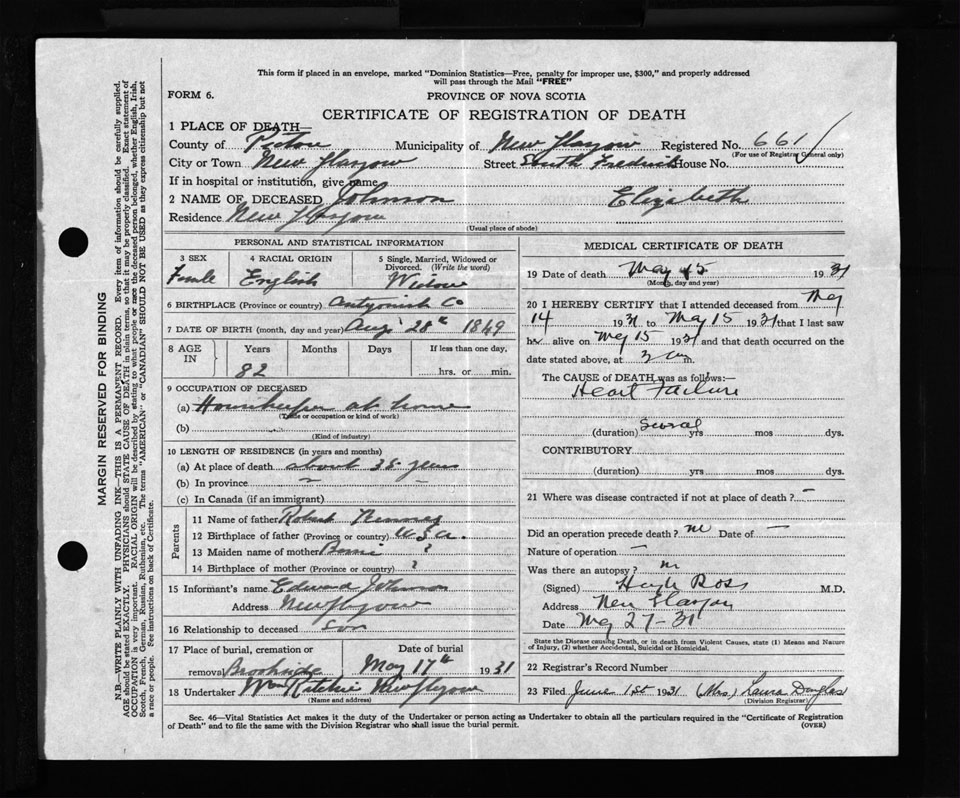 This form if placed in an envelope, marked "Dominion Statistics—Free, penalty for improper use, $300," and properly addressed
will pass through the Mail "FREE"
FORM 6.
PROVINCE OF NOVA SCOTIA
CERTIFICATE OF REGISTRATION OF DEATH
1 PLACE OF DEATH—
County of Pictou Municipality of New Glasgow Registered No. 661
(For use of Registrar General only)
City or Town New Glasgow Street South Frederick House No.
If in hospital or institution, give name
2 NAME OF DECEASED Johnson Elizabeth
Residence New Glasgow
(Usual place of abode)
PERSONAL AND STATISTICAL INFORMATION
3 SEX 4 RACIAL ORIGIN 5 Single, Married, Widowed or
Divorced. (Write the word)
Female English Widow
6 BIRTHPLACE (Province or country) Antigonish Co
7 DATE OF BIRTH (month, day and year) Aug. 28th 1849
8 AGE IN Years Months Days If less than one day,
82 hrs. or min.
9 OCCUPATION OF DECEASED
(a) Housekeeper at home
(Trade or occupation or kind of work)
(b)
(Kind of industry)
10 LENGTH OF RESIDENCE (in years and months)
(a) At place of death about 35 years
(b) In province
(c) In Canada (if an immigrant)
Parents
11 Name of father Robert
12 Birthplace of father (Province or country) U.S.A.
13 Maiden name of mother ?
14 Birthplace of mother (Province or country) ?
15 Informant's name Edward Johnson
Address New Glasgow
16 Relationship to deceased son
17 Place of burial, cremation or Date of burial
removal Brookside May 17th 1931
18 Undertaker Wm Ritchie New Glasgow
(Name and address)
MEDICAL CERTIFICATE OF DEATH
19 Date of death May 15 1931
(Month, day and year)
20 I HEREBY CERTIFY that I attended deceased from May
14 1931 to May 15 1931 that I last saw
her alive on May 15 1931 and that death occurred on the
date stated above, at 3 am.
The CAUSE of DEATH was as follows:—
Heart Failure
(duration) Several yrs mos dys.
CONTRIBUTORY
(duration) yrs mos dys.
21 Where was disease contracted if not at place of death? —
Did an operation precede death? no Date of —
Nature of operation —
Was there an autopsy? no
(Signed) Hugh Ross M.D.
Address New Glasgow
Date May 27 - 31
State the Disease causing Death, or in death from Violent Causes, state (1) Means and Nature
of Injury, (2) whether Accidental, Suicidal or Homicidal.
22 Registrar's Record Number
23 Filed June 1st 1931 (Mrs) Laura Douglas
(Division Registrar)
Sec. 46—Vital Statistics Act makes it the duty of the Undertaker or person acting as Undertaker to obtain all the particulars required in the "Certificate of Registration
of Death" and to file the same with the Division Registrar who shall issue the burial permit. (OVER)
MARGIN RESERVED FOR BINDING
N.B.—WRITE PLAINLY WITH UNFADING INK—THIS IS A PERMANENT RECORD. Every item of information should be carefully supplied.
AGE should be stated EXACTLY. PHYSICIANS should STATE CAUSE OF DEATH in plain terms, so that it may be properly classified. Exact statement of
OCCUPATION is very important. RACIAL ORIGIN will be described by stating to what people or race the deceased person belonged, whether English, Irish,
Scotch, French, German, Russian, Ruthenian, etc. The terms "AMERICAN" or "CANADIAN" SHOULD NOT BE USED as they express citizenship but not
a race or people. See instructions on back of Certificate.